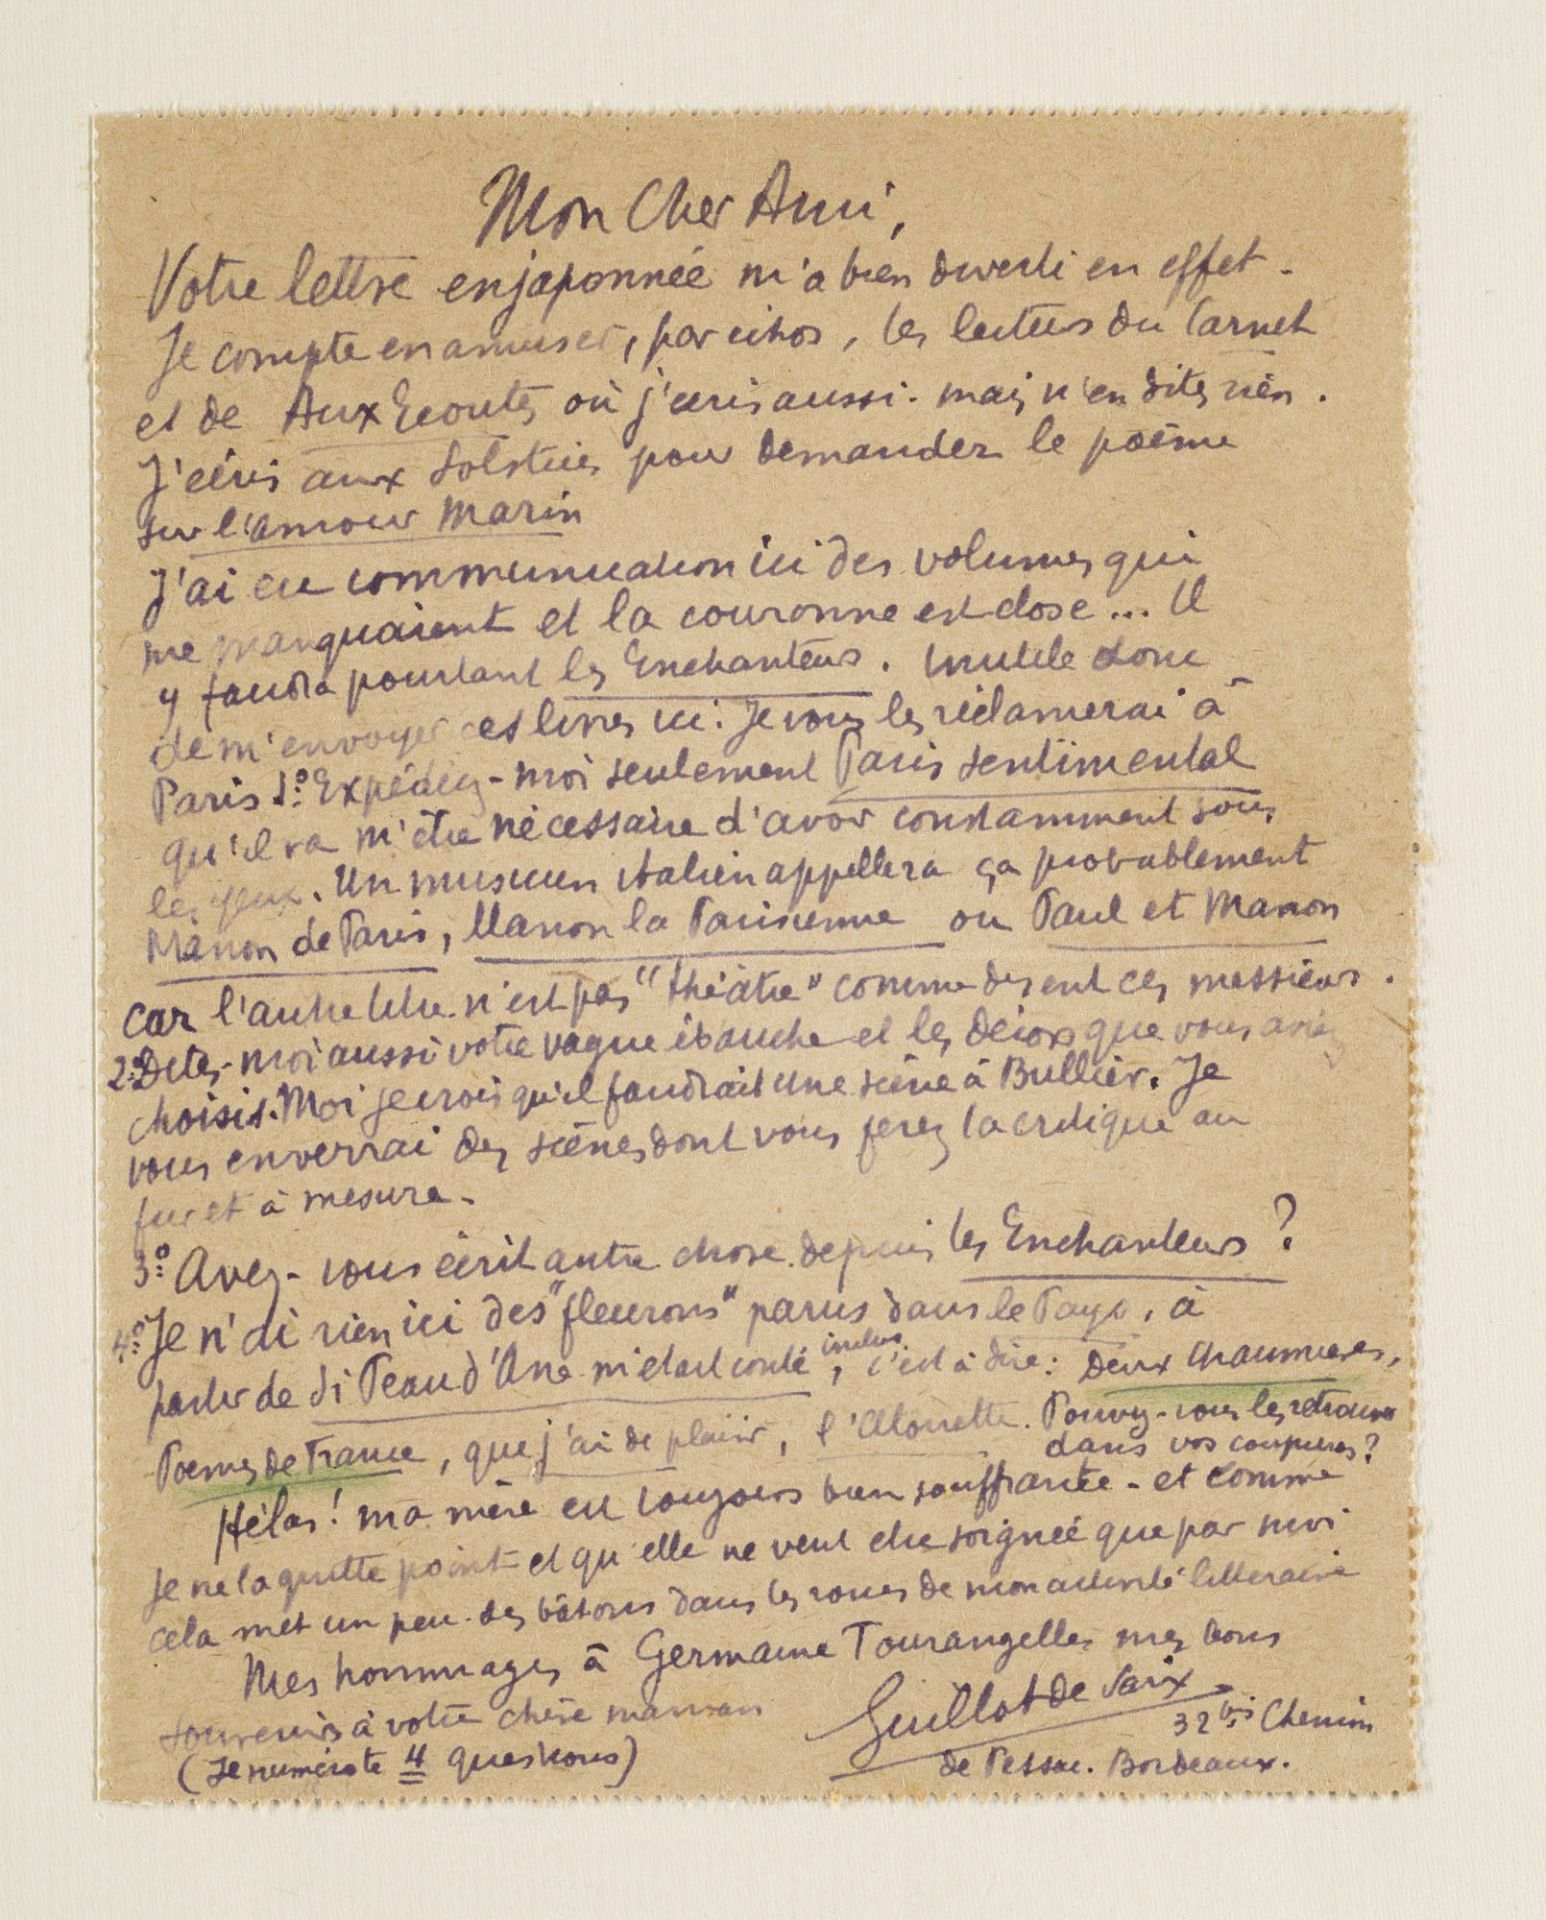 Mon Cher Ami,
Votre lettre enjaponnée m'a bien diverti en effet.
Je compte en amuser, par échos, les lecteurs du Carnet
et de Aux Ecoutes où j'écris aussi. mais n'en dites rien.
J'écris aux Solstices pour demander le poème
sur l'amour Marin
J'ai eu communication ici des volumes qui
me manquaient et la couronne est close... Il
y faudra pourtant les Enchanteurs. Inutile donc
de m'envoyer ces livres ici: Je vous les réclamerai à
Paris 1º: Expédiez-moi seulement Paris sentimental
qu'il va m'être nécessaire d'avoir constamment sous
les yeux. Un musicien italien appellera ça probablement
Manon de Paris, Manon la Parisienne ou Paul et Manon
car l'autre titre n'est pas "théâtre" comme disent ces messieurs.
2º: Dites-moi aussi votre vague ébauche et les décors que vous aviez
choisis. Moi je crois qu'il faudrait une scène à Bullier. Je
vous enverrai des scènes dont vous ferez la critique au
fur et à mesure.
3º: Avez-vous écrit autre chose depuis les Enchanteurs?
4º: Je n'ai rien ici des "fleurons" parus dans le Pays, à
partir de Si Peau d'Ane m'était conté inclus, c'est à dire: Deux chaumières,
Poèmes de France, que j'ai de plaisir, l'Alouette. Pouvez-vous les retrouver
dans vos coupures?
Hélas! ma mère est toujours bien souffrante - et comme
je ne la quitte point et qu'elle ne veut être soignée que par moi
cela met un peu des bâtons dans les roues de mon activité littéraire
Mes hommages à Germaine Tourangelle, mes bons
souvenirs à votre chère maman
(Je numérote 4 questions)
Guillot de Saix
32 bis Chemin
de Pessac. Bordeaux.